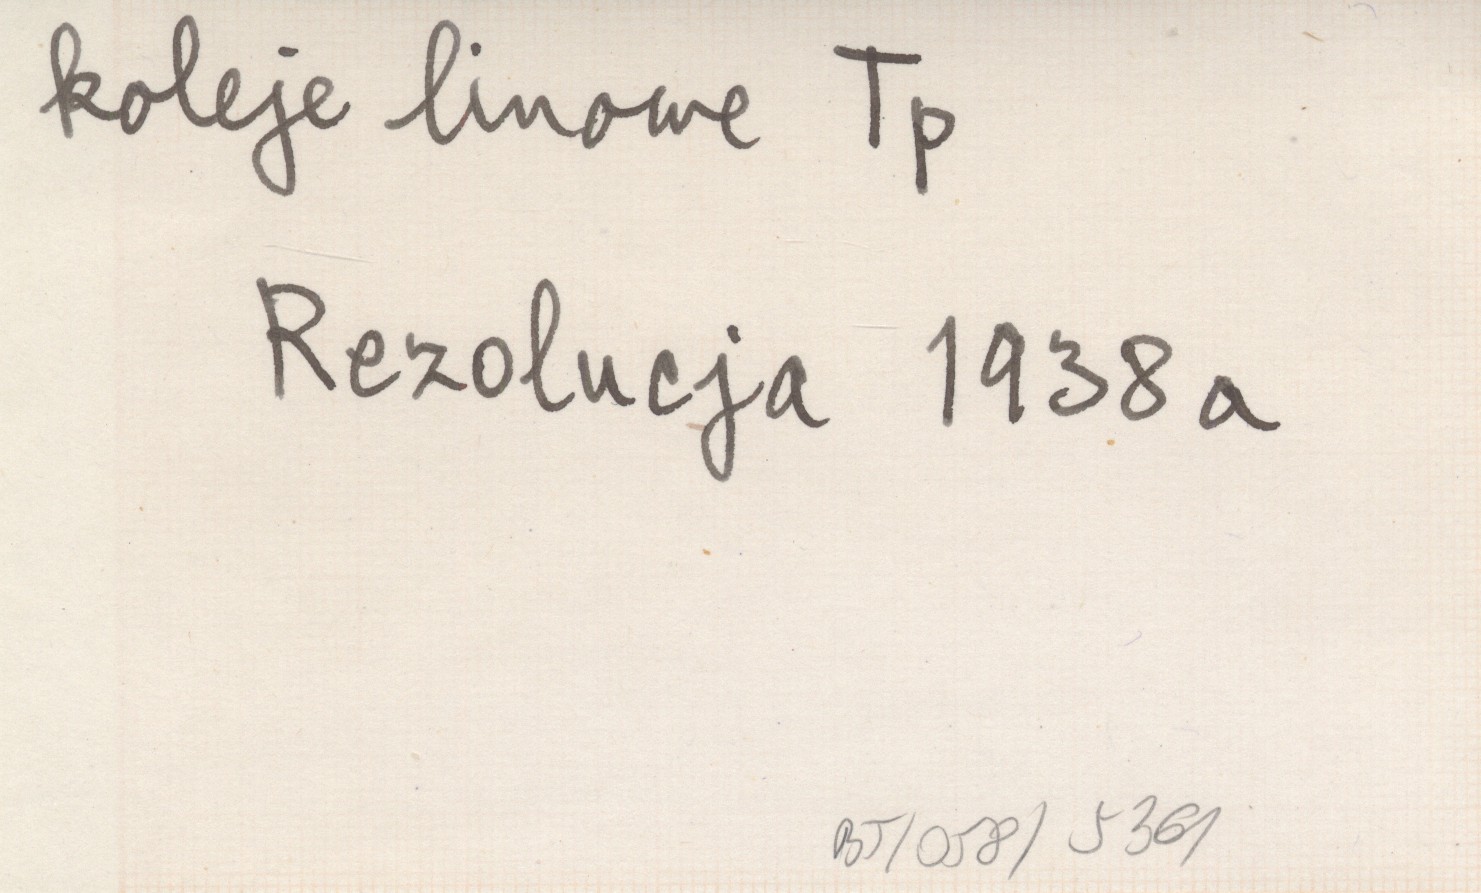 koleje linowe Tp
Rezolucja 1938 a
BT/058/5361